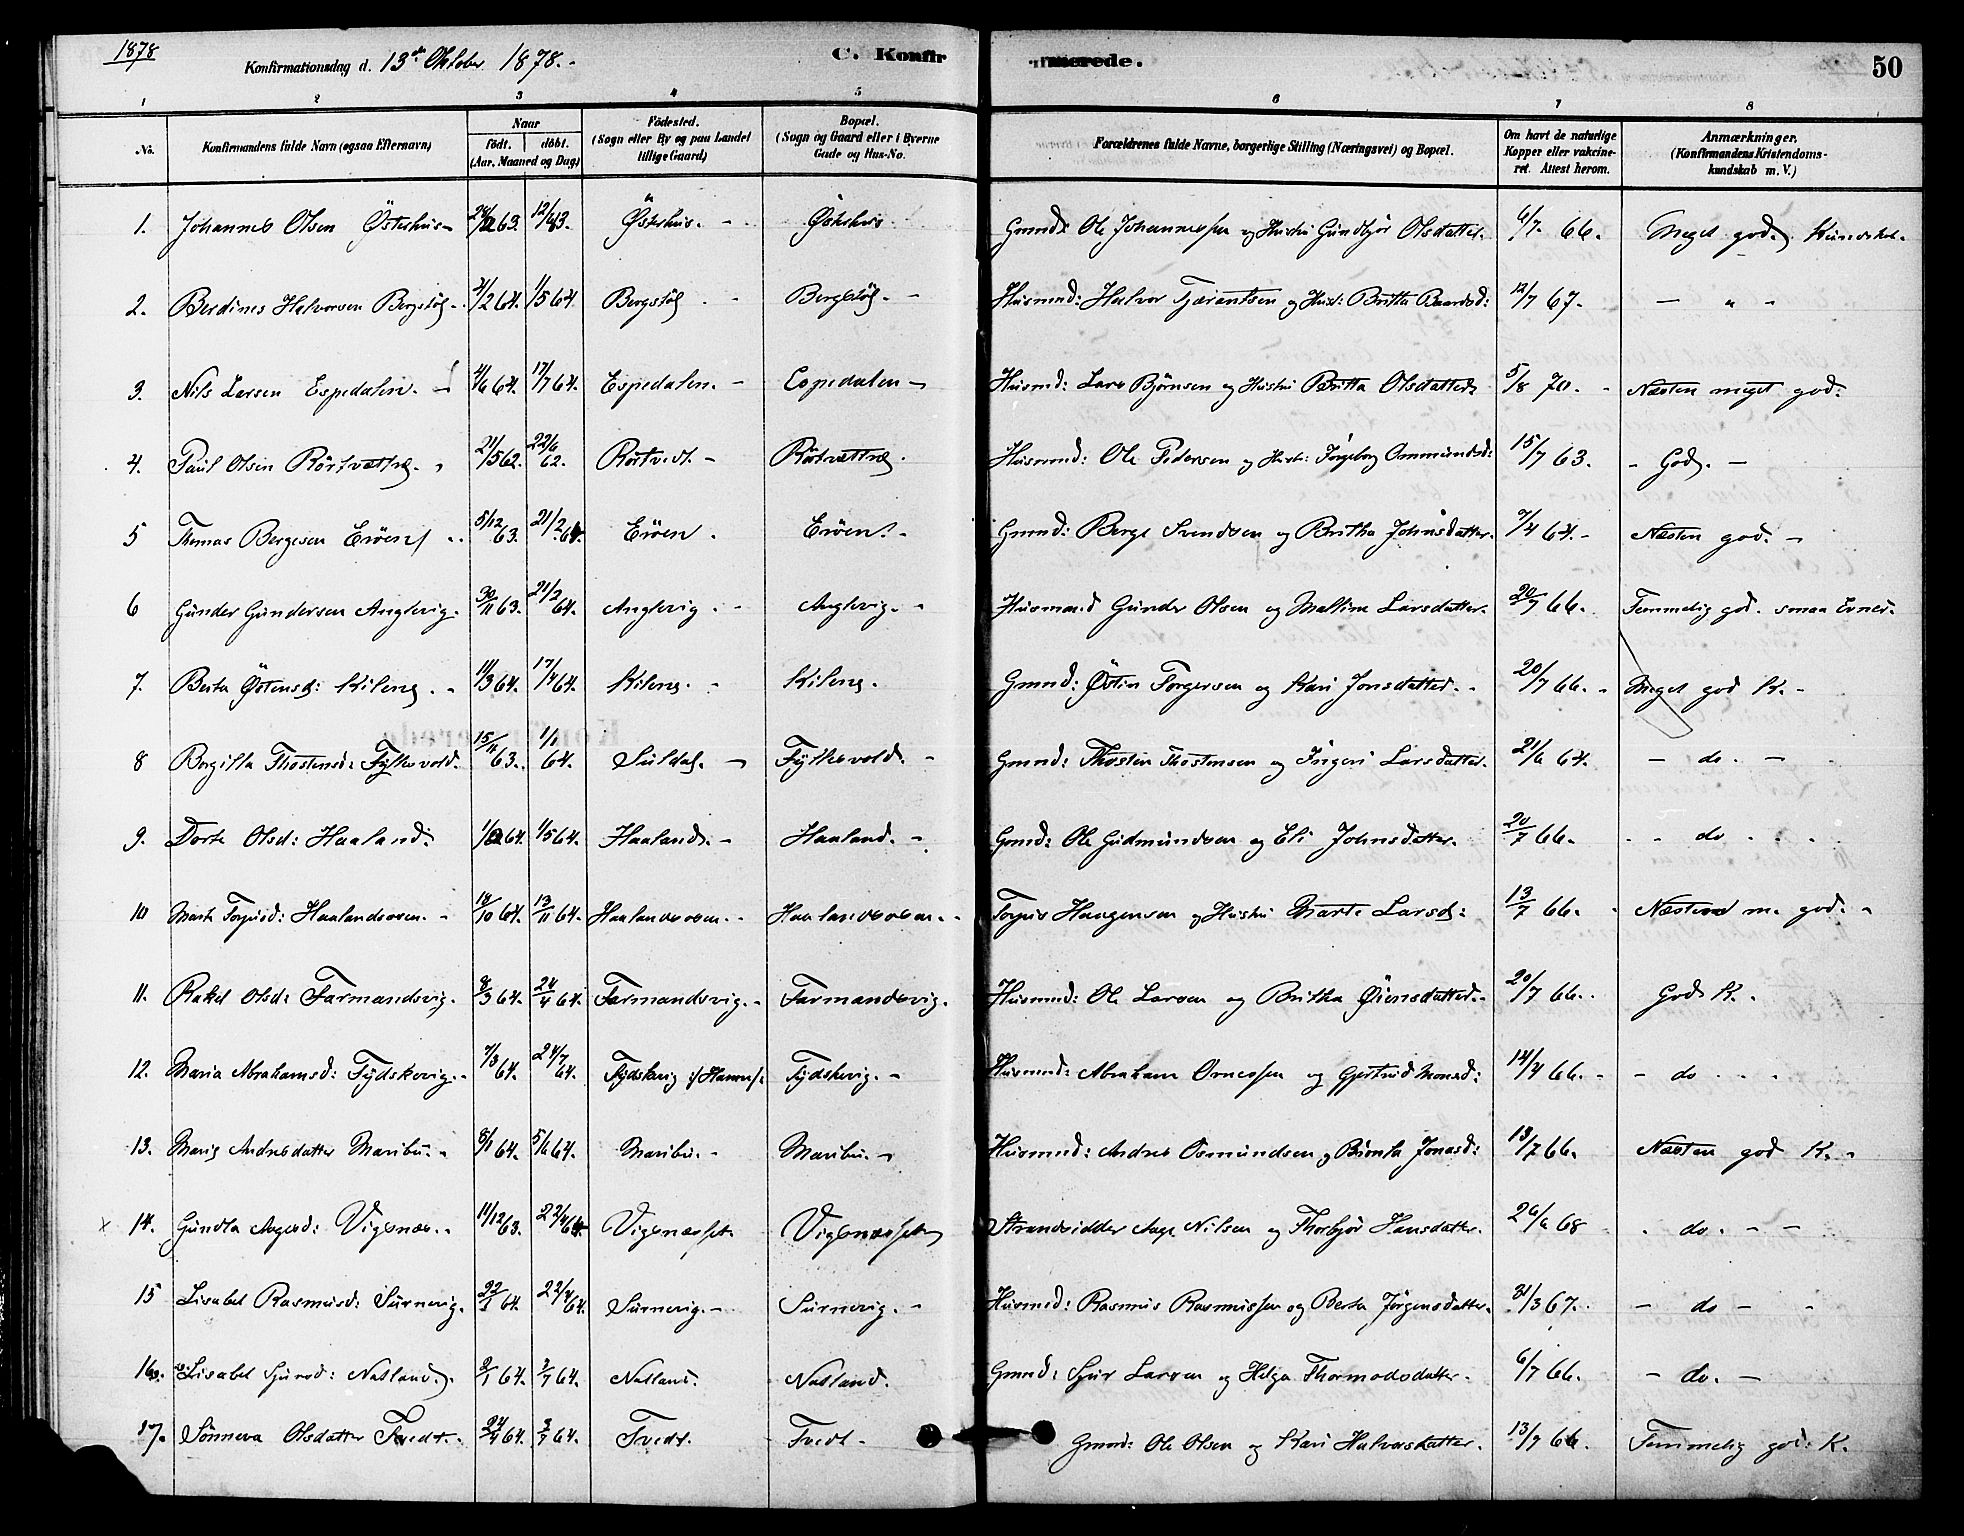 1878
Konfirmationsdag d. 13de Oktober 1878.
C. Konfirmerede.
50
1 2 3 4 5 6 7 8
No.
Konfirmandens fulde Navn (ogsaa Efternavn)
Naar
födt. döbt.
(Aar, Maaned og Dag)
Födested.
(Sogn eller By og paa Landet
tillige Gaard)
Bopæl.
(Sogn og Gaard eller i Byerne
Gade og Hus-No.
Forældrenes fulde Navne, borgerlige Stilling (Næringsvei) og Bopæl.
Om havt de naturlige
Kopper eller vakcine-
ret. Attest herom.
Anmærkninger.
(Konfirmandens Kristendoms-
kundskab m. V.)
1. Johannes Olsen Østerhus Østerhus. Østerhus Gmd: Ole Johannessen og Hustru Gundbjør Olsdatter. 6/7 66. Meget god. Kundskab.
2. Berdines Halvorsen Bergstøl 1/5 64. Bergstöl Bergstöl Husmd: Halvor og Hust: Britta Baardsd: 12/7 67. - " -
3. Nils Larsen Espedalen. 4/6 64. 17/7 64. Espedalen. Espedalen Husmd: Lars Bjørnsen og Hustru Britta Olsdatter 5/8 70. Næsten meget god.
4. Paul Olsen 21/5 62. 22/6 62. Rörtvedt. Husmd: Ole Pedersen og Hust: Ommundsd: 15/7 63. God.
5 Thomas Bergesen Eröen 5/12 63. 21/2 64. Eröen. Eröen. Gmd: Berge Svendsen og Britha Johnsdatter. 7/4 64. Næsten god.
6 Gunder Gundersen Anglevig. 30/11 63. 21/2 64. Anglevig. Anglevig. Husmand Gunder Olsen og Malline Larsdatter. 20/7 66. Temmelig god. smaa Evner.
7. Berta Østensd: Kileng. 11/3 64. 17/4 64. Kileng. Kileng. Gmd: Östen Torgersen og Kari Jonsdatter. 20/7 66. Meget god K.
8 Bergitta Thostensd: Fytkevold. 15/11 63. 1/1 64. Suldal. Fytkevold. Gmd: Thosten Thostensen og Ingeri Larsdatter. 21/6 64. - do. -
9. Dorte Olsd: Haaland. 1/5 64. Haaland. Haaland. Gmd: Ole Gudmundsen og Eli Johnsdatter. 20/7 66. do
10 Marta Torpisd: Haalandsosen. 18/10 64. 13/11 64. Haalandsosen. Haalandsosen. Torpis Haagensen og Hustru Marte Larsd: 13/7 66. Næsten m. god.
11. Rakel Olsd: Farmandsvig. 8/3 64. 24/4 64. Farmandsvig. Farmandsvig. Husmd: Ole Larsen og Britha Øiensdatter. 20/7 66. God K.
12. Maria Abrahamsd: Tydskevig. 7/3 64. 24/7 64. Tydskevig Tydskevig. Husmd: Abraham Ornessen og Gjertrud Monsd: 14/4 66. - do
13. Marig Andresdatter Maribu. 8/1 64. 5/6 64. Maribu. Maribu. Husmd: Andres Osmundsen og Jonasd: 13/7 66. Næsten god K.
x 14. Gundla Aagesd: Vigsnæs. 11/12 63. 22/4 64. Vigsnæsset. Vigsnæsset Strandsidder Aage Nilsen og Thorbjør Hansdatter. 26/6 68 do.
15 Lisabet Rasmusd: Surnevig. 22/1 64. 22/4 64. Surnevig. Surnevig. Husmd: Rasmus Rasmussen og Berta Jørgensdatter. 31/3 67. - do -
16. Lisabet Sjursd: Natland. 2/1 64. 3/7 64. Natland. Natland. Gmd: Sjur Larsen og Helga Thormodsdatter. 6/7 66. - do. -
17. Sønneva Olsdatter Tvedt. 24/4 64. 3/7 64. Tvedt. Tvedt Gmd: Ole Olsen og Kari Halvorsdatter. 13/7 66. Temmelig god: K.